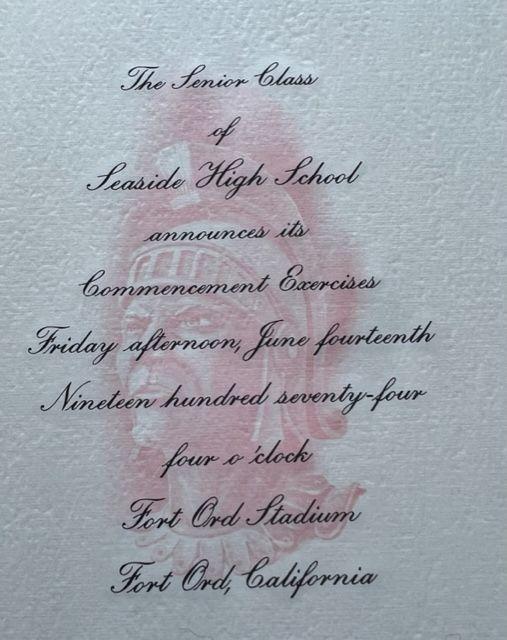 The Senior Class
of
Seaside High School
announces its
Commencement Exercises
Friday afternoon, June fourteenth
Nineteen hundred seventy-four
four o'clock
Fort Ord Stadium
Fort Ord, California